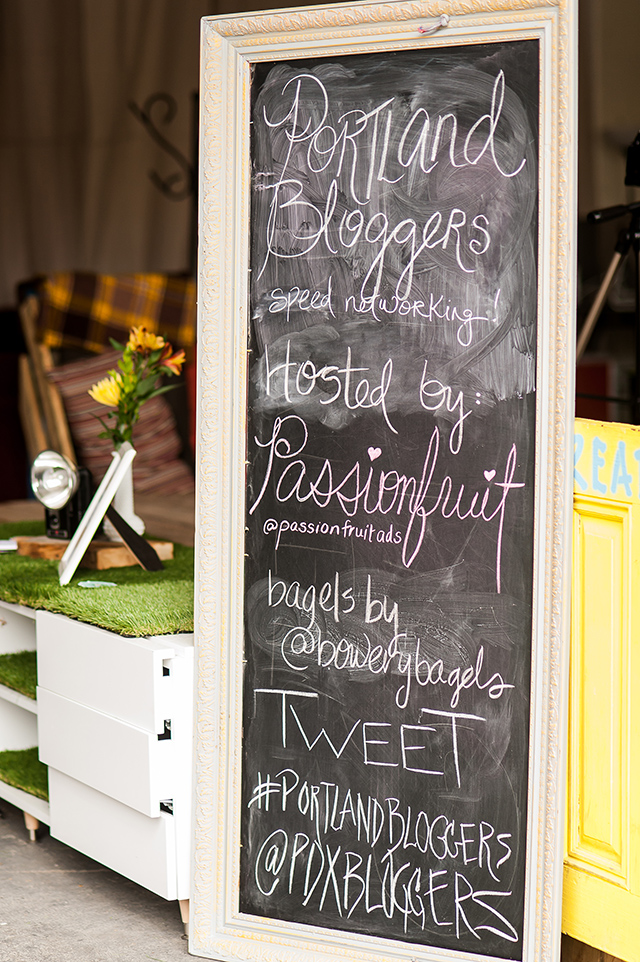 PORTLand
Bloggers
speed networking!
Hosted by:
Passionfruit
@passionfruitads
bagels by
@bowerybagels
TWEET
#PORTLANDBLOGGERS
@PDXBLOGGERS
REAT